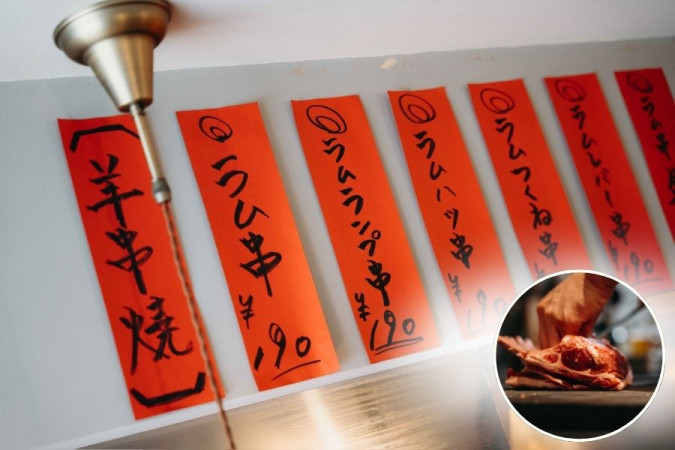 〔羊串焼〕
◎ラム串
¥190
◎ラムランプ串
¥190
◎ラムハツ串
¥190
◎ラムつくね串
¥
◎ラムレバー串
190
◎ラム